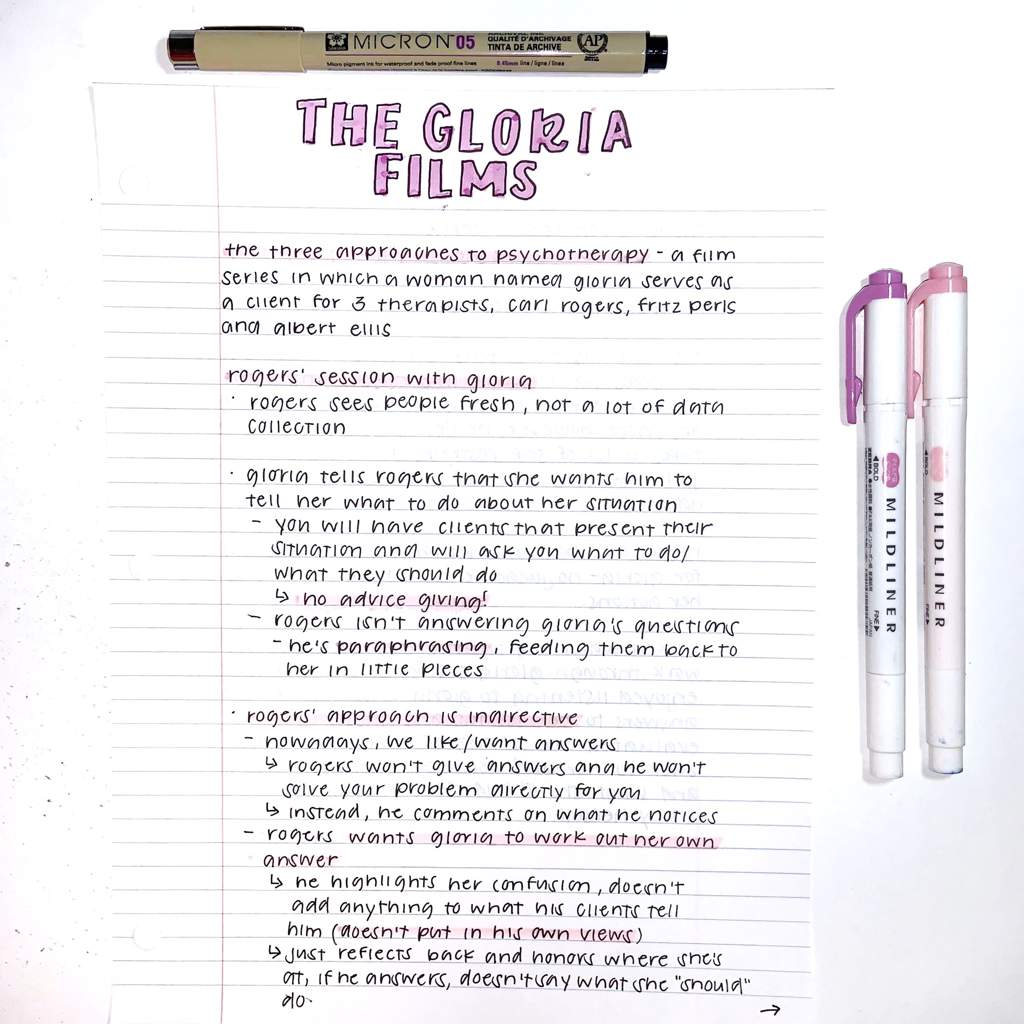 MICRON 05
ARCHIVAL INK
QUALITÉ D'ARCHIVAGE
TINTA DE ARCHIVE
AP
Micro pigment ink for waterproof and fade proof fine lines
0.45mm line / ligne / linea
THE GLORIA
FILMS
the three approaches to psychotherapy - a film
series in which a woman named gloria serves as
a client for 3 therapists, carl rogers, fritz perls
and albert ellis
rogers' session with gloria
· rogers sees people fresh, not a lot of data
collection
· gloria tells rogers that she wants him to
tell her what to do about her situation
- you will have clients that present their
situation and will ask you what to do/
what they should do
↳ no advice giving!
- rogers isn't answering gloria's questions
- he's paraphrasing, feeding them back to
her in little pieces
· rogers' approach is indirective
- nowadays, we like/want answers
↳ rogers won't give answers and he won't
solve your problem directly for you
↳ instead, he comments on what he notices
- rogers wants gloria to work out her own
answer
↳ he highlights her confusion, doesn't
add anything to what his clients tell
him (doesn't put in his own views)
↳ just reflects back and honors where she's
at, if he answers, doesn't say what she "should"
do
→
◀BOLD
ZEBRA
MILDLINER
FINE▶
JAPAN
◀BOLD
MILDLINER
FINE▶